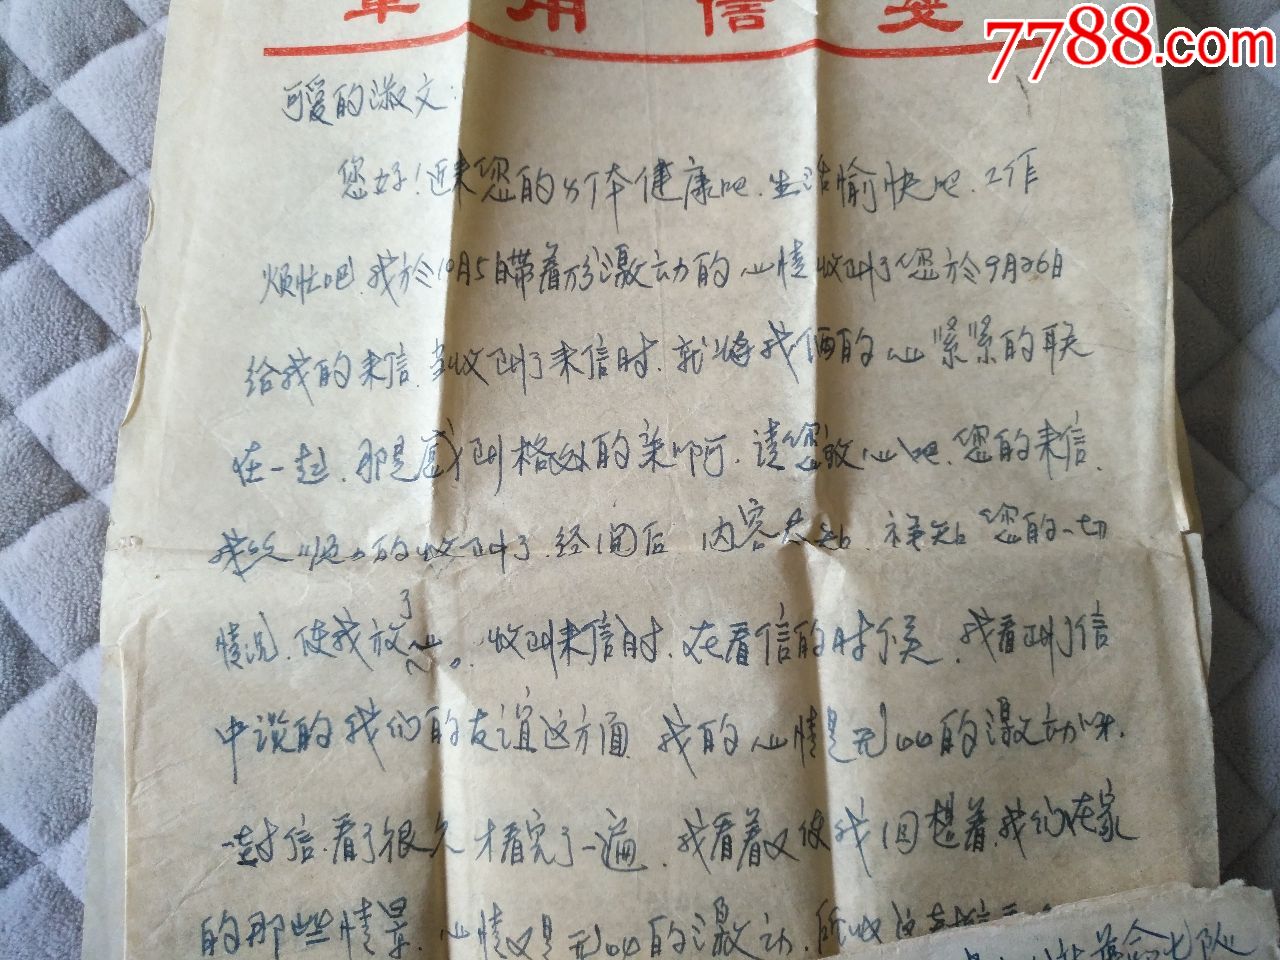 军用信笺
7788.com
可爱的淑文：
您好！近来您的身体健康吧．生活愉快吧．工作
烦忙吧．我於10月5日带着万分激动的心情收到了您於9月26日
给我的来信．当收到了来信时．就将我俩的心紧紧的联
在一起．那是感到格外的亲啊．请您放心吧．您的来信．
我给顺力的收到了．经阅后 内容大知．禄知您的一切
情况．使我放了心。收到来信时．在看信的时候．我看到了信
中谈的我们的友谊这方面．我的心情是无比的激动呀．
一封信．看了很久才看完了一遍．我看着又使我回想着．我们在家
的那些情景．心情又是无比的激动．所以
七队